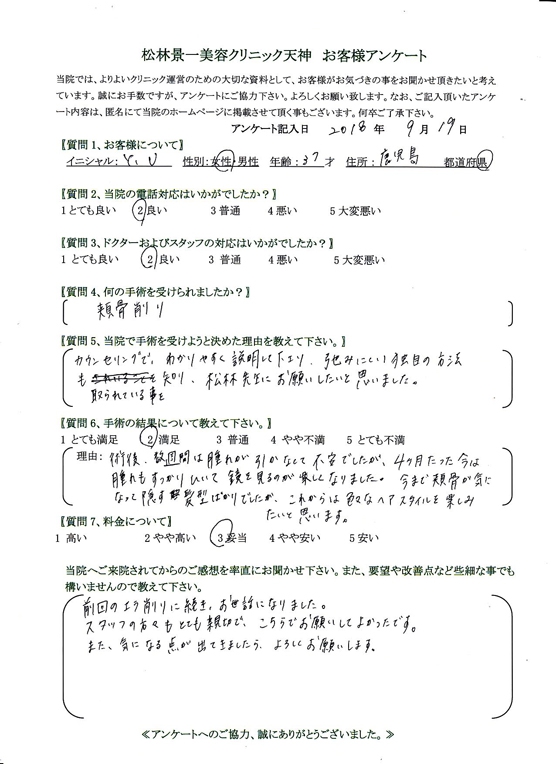 松林景一美容クリニック天神　お客様アンケート
当院では、よりよいクリニック運営のための大切な資料として、お客様がお気づきの事をお聞かせ頂きたいと考え
ています。誠にお手数ですが、アンケートにご協力下さい。よろしくお願い致します。なお、ご記入頂いたアンケ
ート内容は、匿名にて当院のホームページに掲載させて頂く事もございます。何卒ご了承下さい。
アンケート記入日　2018年　9月19日
〖質問1、お客様について〗
イニシャル：Y，U　性別：女性・男性　年齢：37才　住所：鹿児島　都道府県
〖質問2、当院の電話対応はいかがでしたか？〗
1とても良い　2良い　3普通　4悪い　5大変悪い
〖質問3、ドクターおよびスタッフの対応はいかがでしたか？〗
1 とても良い　2良い　3 普通　4悪い　5大変悪い
〖質問4、何の手術を受けられましたか？〗
頬骨削り
〖質問5、当院で手術を受けようと決めた理由を教えて下さい。〗
カウンセリングで、わかりやすく説明して下さり、弛みにくい独自の方法
も 知り、松林先生にお願いしたいと思いました。
取られている事を
〖質問6、手術の結果について教えて下さい。〗
1とても満足　2満足　3 普通　4 やや不満　5 とても不満
理由：術後、数週間は腫れが引かなくて不安でしたが、4ヶ月たった今は
腫れもすっかりひいて鏡を見るのが楽しくなりました。今まで頬骨が気に
なって隠す髪型ばかりでしたが、これからは色々なヘアスタイルを楽しみ
たいと思います。
〖質問7、料金について〗
1 高い　2やや高い　3妥当　4やや安い　5安い
当院へご来院されてからのご感想を率直にお聞かせ下さい。また、要望や改善点など些細な事でも
構いませんので教えて下さい。
前回のエラ削りに続き、お世話になりました。
スタッフの方々もとても親切で、こちらでお願いしてよかったです。
また、気になる点が出てきましたら、よろしくお願いします。
≪アンケートへのご協力、誠にありがとうございました。≫